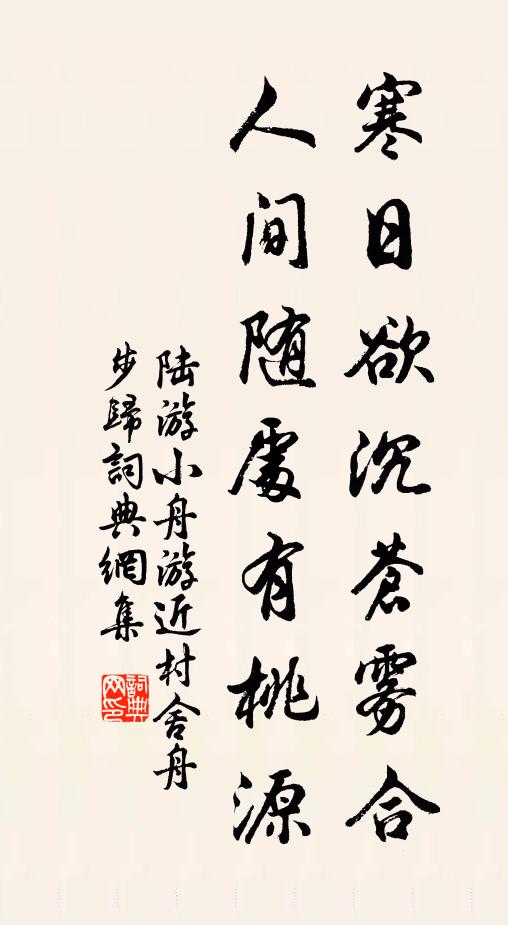 寒日欲沉蒼雾合
人间随處有桃源
陆游小舟游近村舍舟
步歸詞典網集
詞典网印